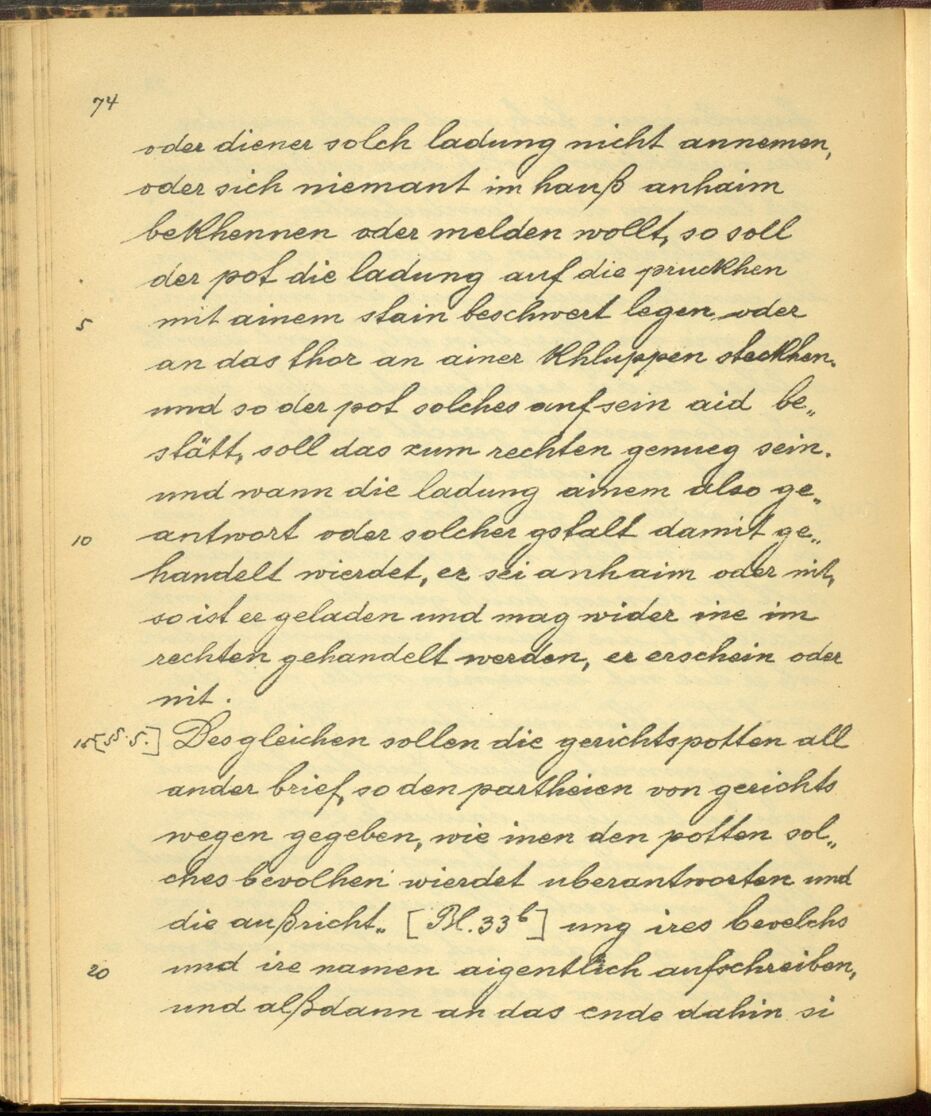 74
oder diener solch ladung nicht annemen,
oder sich niemant im hauß anhaim
bekhennen oder melden wollt, so soll
der pot die ladung auf die pruckhen
5 mit ainem stain beschwert legen oder
an das thor an ainer khluppen steckhen.
und so der pot solches auf sein aid be„
stätt, soll das zum rechten genueg sein.
und wann die ladung ainem also ge„
10 antwort oder solcher gstalt damit ge„
handelt wierdet, er sei anhaim oder nit,
so ist er geladen und mag wider ine im
rechten gehandelt werden, er erschein oder
nit.
15 [§§. 5.] Desgleichen sollen die gerichtspotten all
ander brief, so den partheien von gerichts
wegen gegeben, wie inen den potten sol„
ches bevolhen wierdet uberantworten und
die außricht„ [Bl. 33b] ung ires bevelchs
20 und ire namen aigentlich aufschreiben,
und alßdann an das ende dahin si